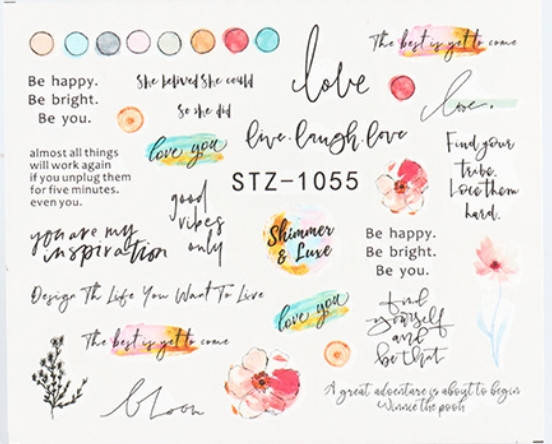 The best is yet to come
Be happy.
Be bright.
Be you.
She belived She could
so she did
love
love.
almost all things
will work again
if you unplug them
for five minutes.
even you.
love you
live.laugh.love
Find your
tribe.
Love them
hard.
STZ-1055
good
vibes
only
you are my
inspiration
Shimmer
& Luxe
Be happy.
Be bright.
Be you.
Design The Life You Want To Live
love you
find
yourself
and
be that
The best is yet to come
bloom
A great adventure is about to begin
Winnie the pooh